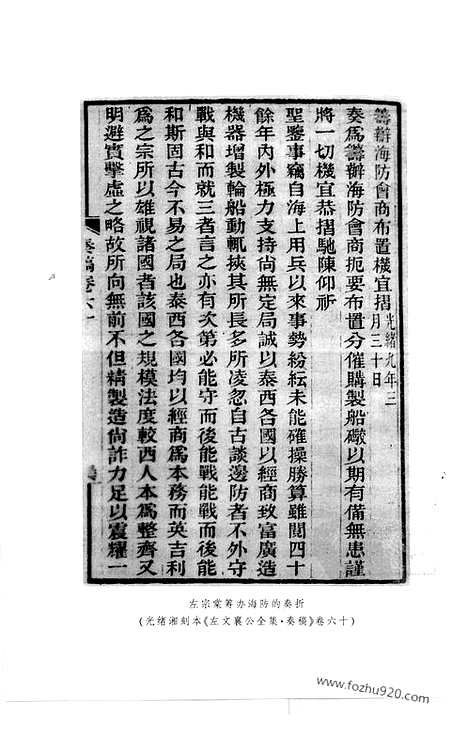 籌辦海防會商布置機宜摺光緒九年三月三十日
奏為籌辦海防會商扼要布置分催購製船礮以期有備無患謹
將一切機宜恭摺馳陳仰祈
聖鑒事竊自海上用兵以來事勢紛紜未能確操勝算雖閲四十
餘年內外極力支持尙無定局誠以泰西各國以經商致富廣造
機器增製輪船動輒挾其所長多所凌忽自古談邊防者不外守
戰與和而就三者言之亦有次第必能守而後能戰能戰而後能
和斯固古今不易之局也泰西各國均以經商爲本務而英吉利
爲之宗所以雄視諸國者該國之規模法度較西人本爲整齊又
明避實擊虛之略故所向無前不但精製造尙詐力足以震耀一
奏稿卷六十
左宗棠筹办海防的奏折
(光绪湘刻本《左文襄公全集·奏稿》卷六十)
www.fozhu920.com